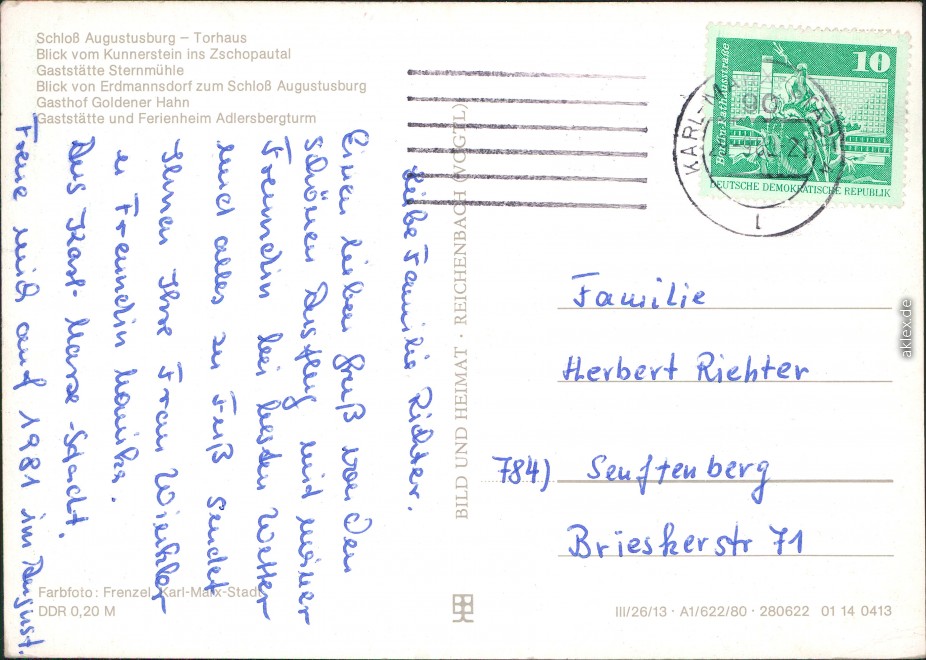 Schloß Augustusburg – Torhaus
Blick vom Kunnerstein ins Zschopautal
Gaststätte Sternmühle
Blick von Erdmannsdorf zum Schloß Augustusburg
Gasthof Goldener Hahn
Gaststätte und Ferienheim Adlersbergturm
Liebe Familie Richter.
Einen lieben Gruß von den
schönen Ausflug mit meiner
Freundin bei besten Wetter
und alles zu Fuß sendet
Ihnen Ihre Frau Winkler
u Freundin Monika.
Aus Karl-Marx-Stadt.
Freue mich auf 1981 im August.
BILD UND HEIMAT · REICHENBACH (VOGTL)
10
DEUTSCHE DEMOKRATISCHE REPUBLIK
KARL-MARX-STADT
90
1
Familie
Herbert Richter
784) Senftenberg
Brieskerstr 71
Farbfoto: Frenzel, Karl-Marx-Stadt
DDR 0,20 M
III/26/13 · A1/622/80 · 280622 01 14 0413
aklex.de